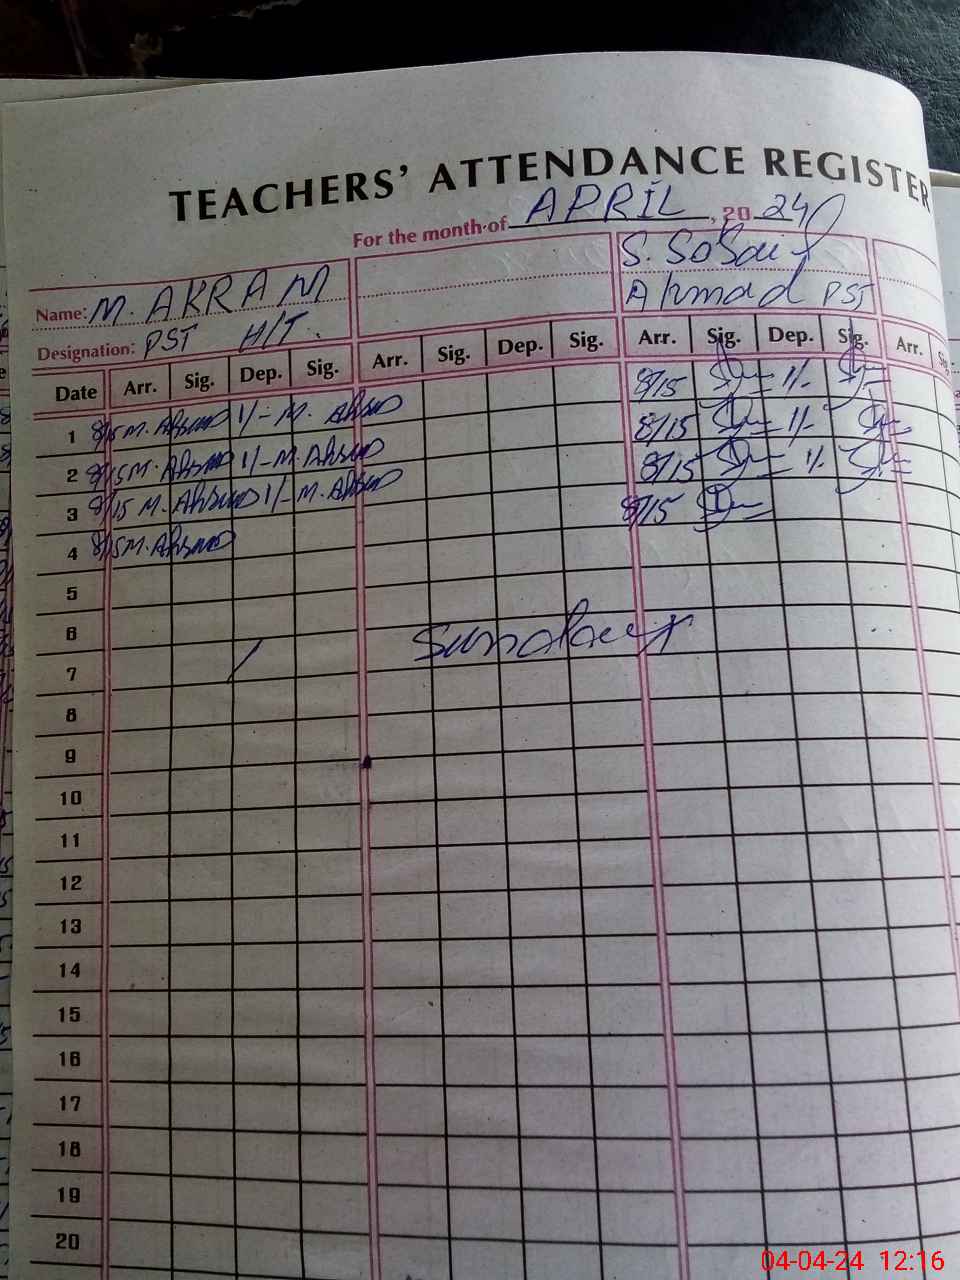 TEACHERS' ATTENDANCE REGISTER
For the month of APRIL, 20 24
Name: M. AKRAM
S.
Ahmad PST
Designation: PST H/T.
Date Arr. Sig. Dep. Sig. Arr. Sig. Dep. Sig. Arr. Sig. Dep. Sig. Arr.
8/15 1/-
1 8/15 M. Akram 1/- M. Akram 8/15 1/-
2 8/15 M. Akram 1/- M. Akram 8/15 1/-
3 8/15 M. Akram 1/- M. Akram 8/15
4 8/15 M. Akram
5
6 Sunday
7
8
9
10
11
12
13
14
15
16
17
18
19
20
04-04-24 12:16